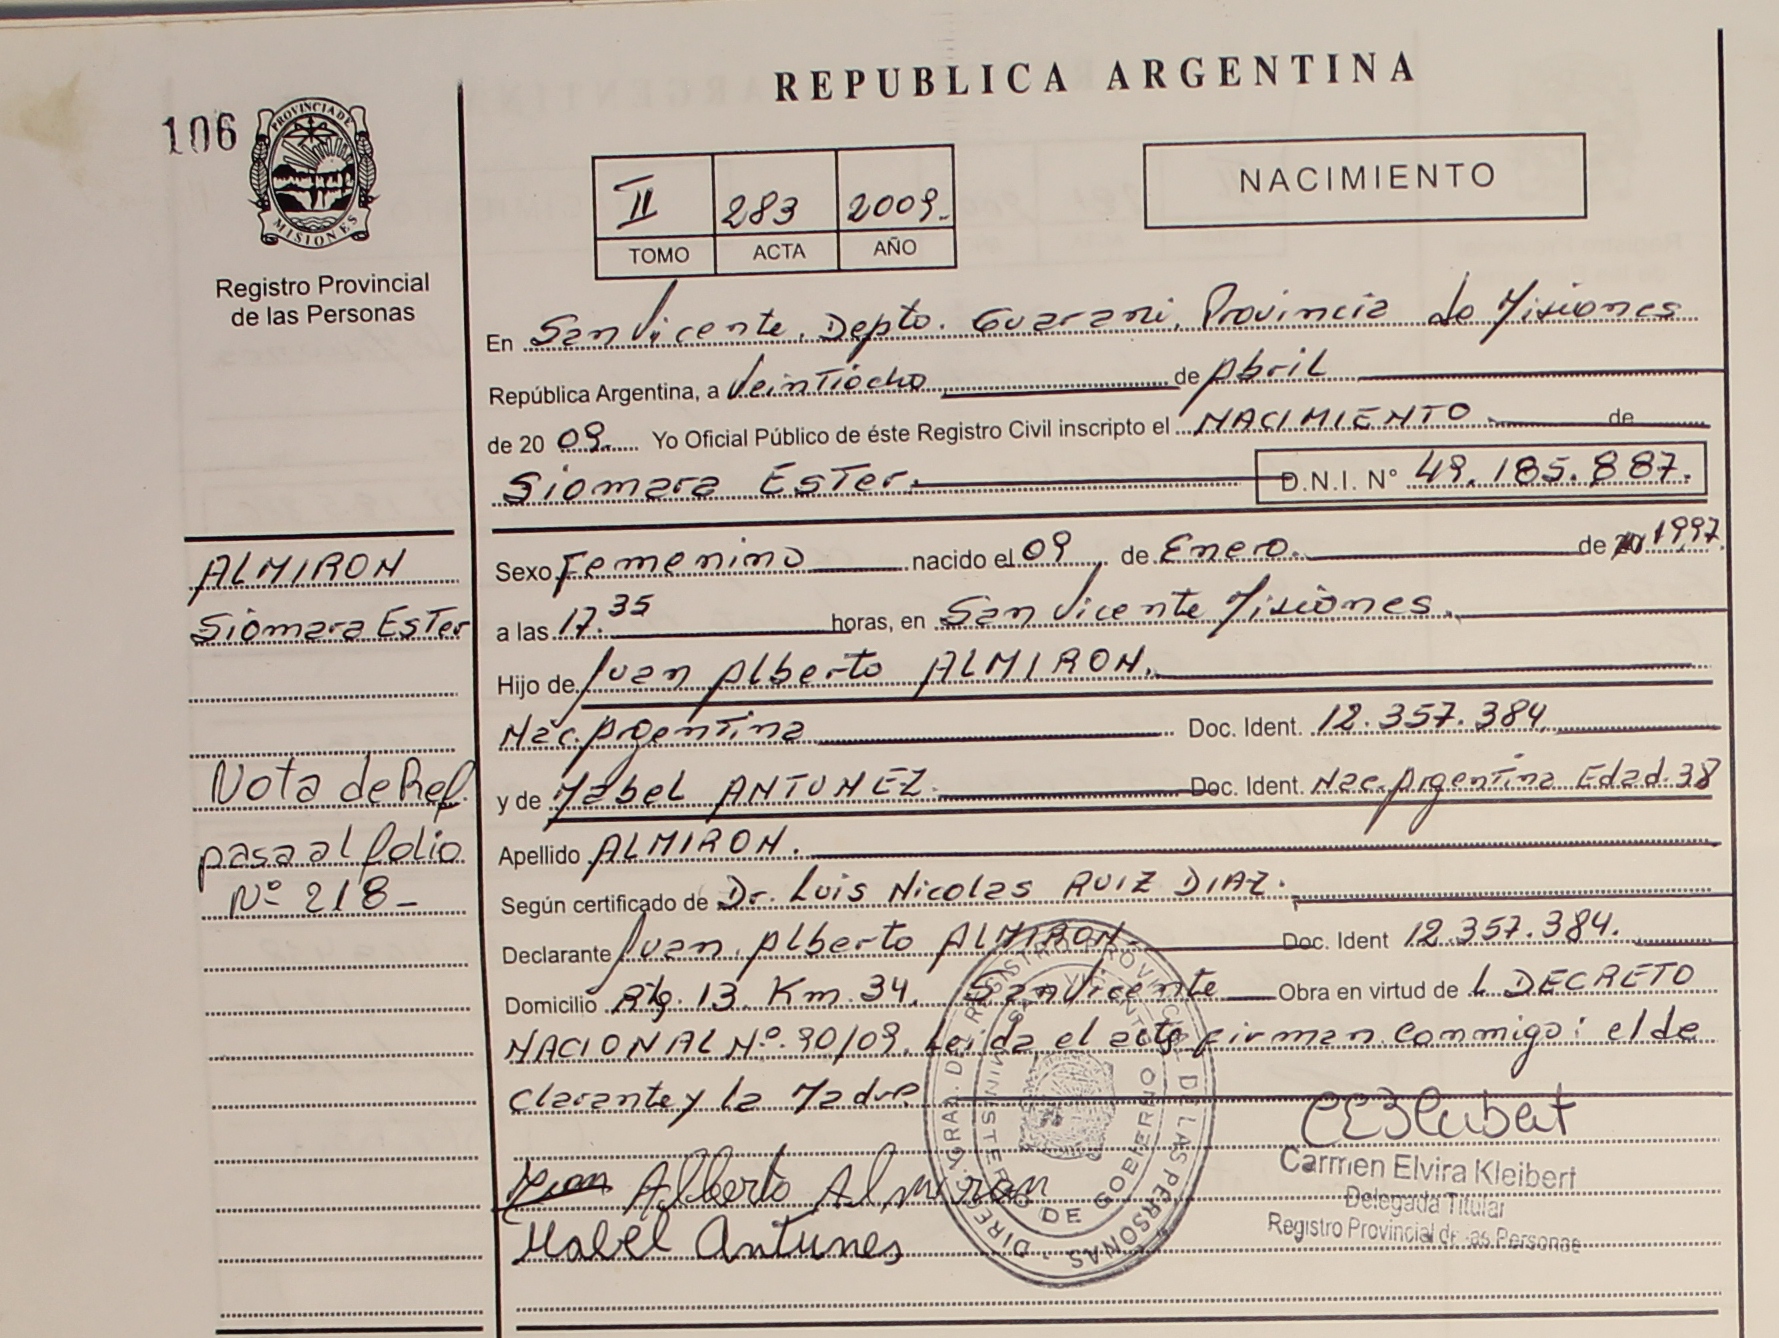 REPUBLICA ARGENTINA
106
PROVINCIA DE
MISIONES
Registro Provincial
de las Personas
II 283 2009.
TOMO ACTA AÑO
NACIMIENTO
En San Vicente, Depto. Guarani, Provincia de Misiones
República Argentina, a Veintiocho de Abril
de 20 09. Yo Oficial Público de éste Registro Civil inscripto el NACIMIENTO de
Siomara Ester. D.N.I. N° 49.185.887.
ALMIRON
Siomara Ester
Nota de Ref.
pasa al folio
Nº 218-
Sexo Femenino nacido el 09 de Enero. de 1997.
a las 17.35 horas, en San Vicente Misiones.
Hijo de Juan Alberto ALMIRON.
Nac. Argentina Doc. Ident. 12.357.384.
y de Mabel ANTUNEZ. Doc. Ident. Nac. Argentina Edad.38
Apellido ALMIRON.
Según certificado de Dr. Luis Nicolas RUIZ DIAZ.
Declarante Juan Alberto ALMIRON. Doc. Ident 12.357.384.
Domicilio Rta. 13 Km. 34. San Vicente Obra en virtud de L DECRETO
NACIONAL Nº. 90/09. Leida el acta firman commigo: el de
clarante y la Madre
Juan Alberto Almiron
Mabel Antunes
Carmen Elvira Kleibert
Delegada Titular
Registro Provincial de las Personas
DIREC. GRAL. DE REGISTRO PROVINCIAL DE LAS PERSONAS
MINISTERIO DE GOBIERNO